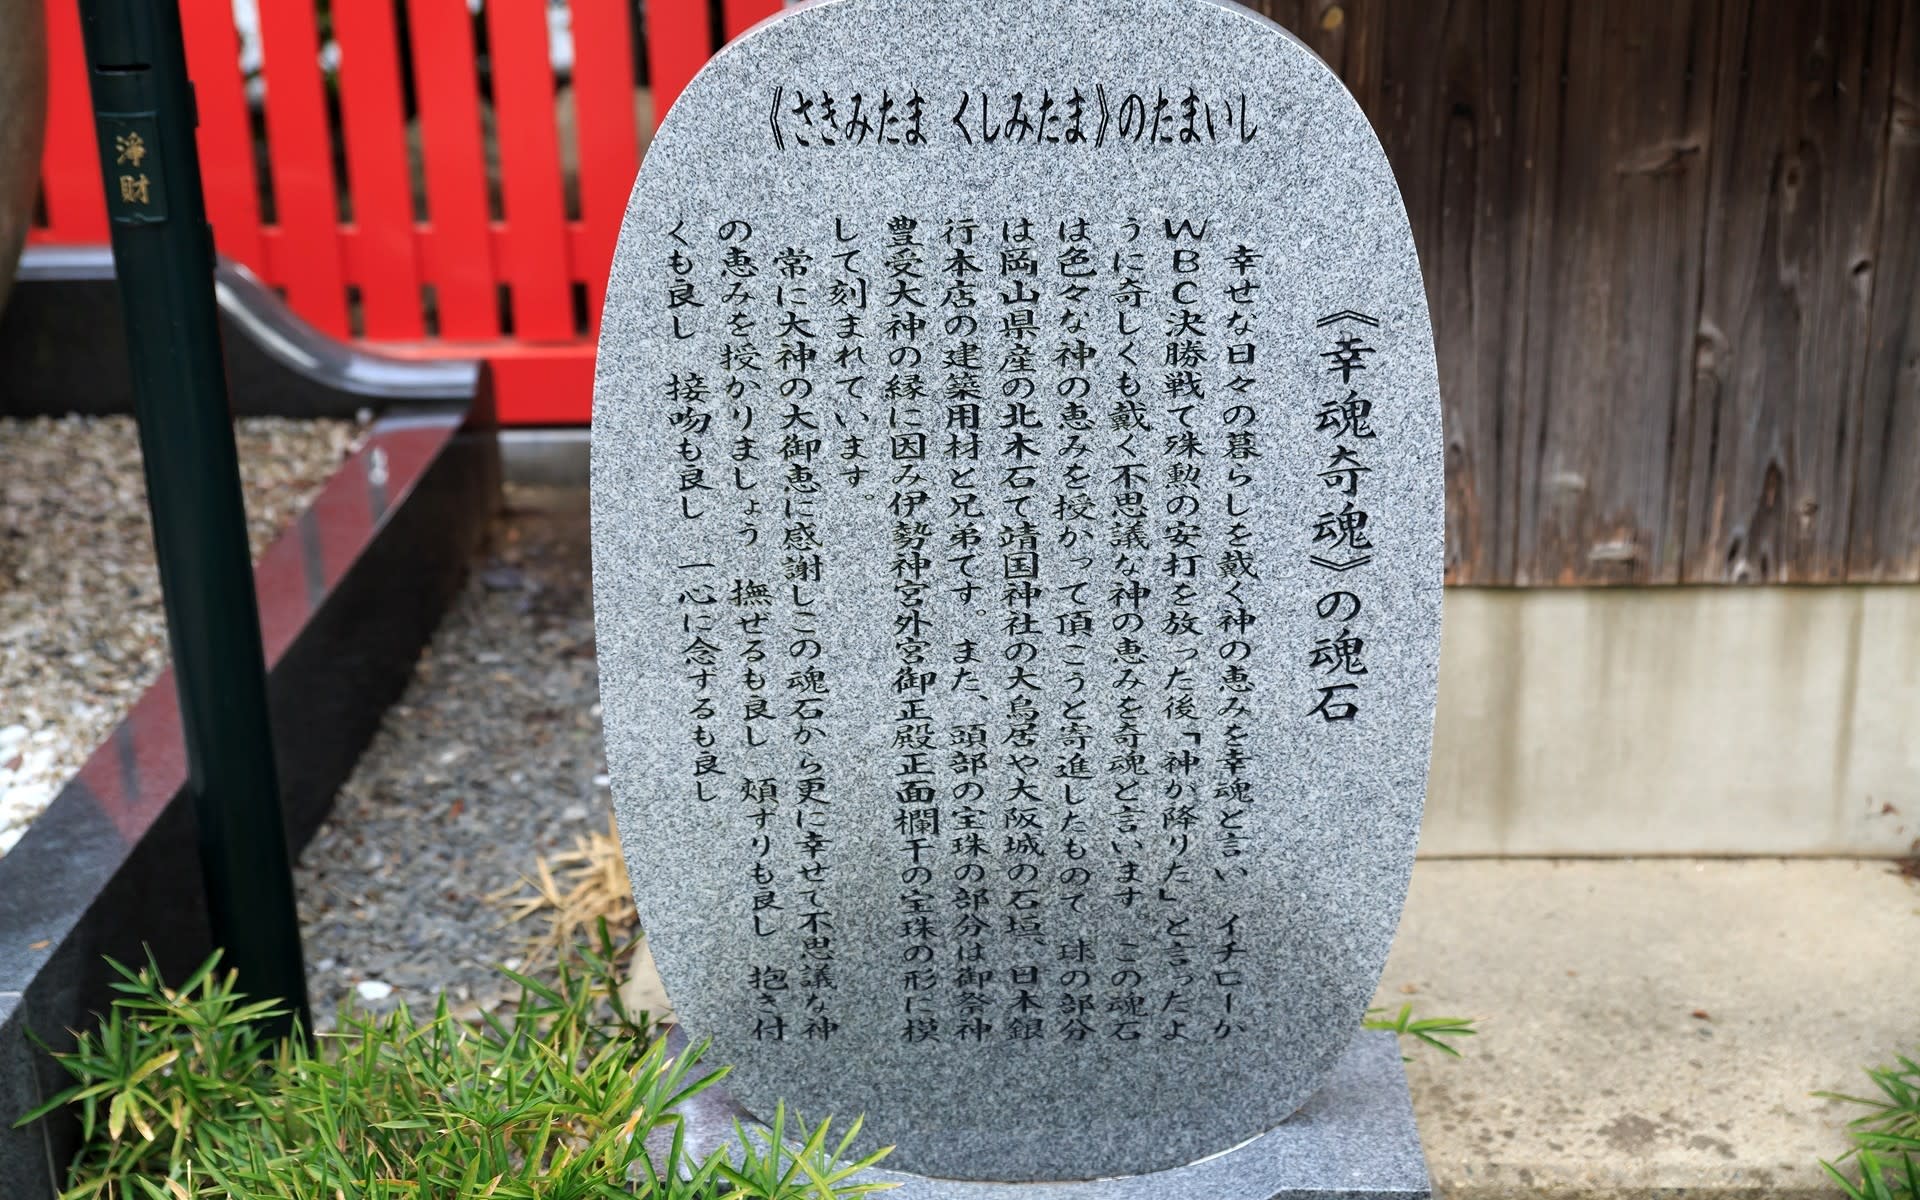 《さきみたま くしみたま》のたまいし
《幸魂奇魂》の魂石
幸せな日々の暮らしを戴く神の恵みを幸魂と言い イチローが
WBC決勝戦て殊勲の安打を放った後「神が降りた」と言ったよ
うに奇しくも戴く不思議な神の恵みを奇魂と言います この魂石
は色々な神の恵みを授かって頂こうと寄進したもので 球の部分
は岡山県産の北木石て靖国神社の大鳥居や大阪城の石垣、日本銀
行本店の建築用材と兄弟です。また、頭部の宝珠の部分は御祭神
豊受大神の縁に因み伊勢神宮外宮御正殿正面欄干の宝珠の形に模
して刻まれています。
常に大神の大御恵に感謝しこの魂石から更に幸せて不思議な神
の恵みを授かりましょう 撫ぜるも良し 頬ずりも良し 抱き付
くも良し 接吻も良し 一心に念ずるも良し
浄財